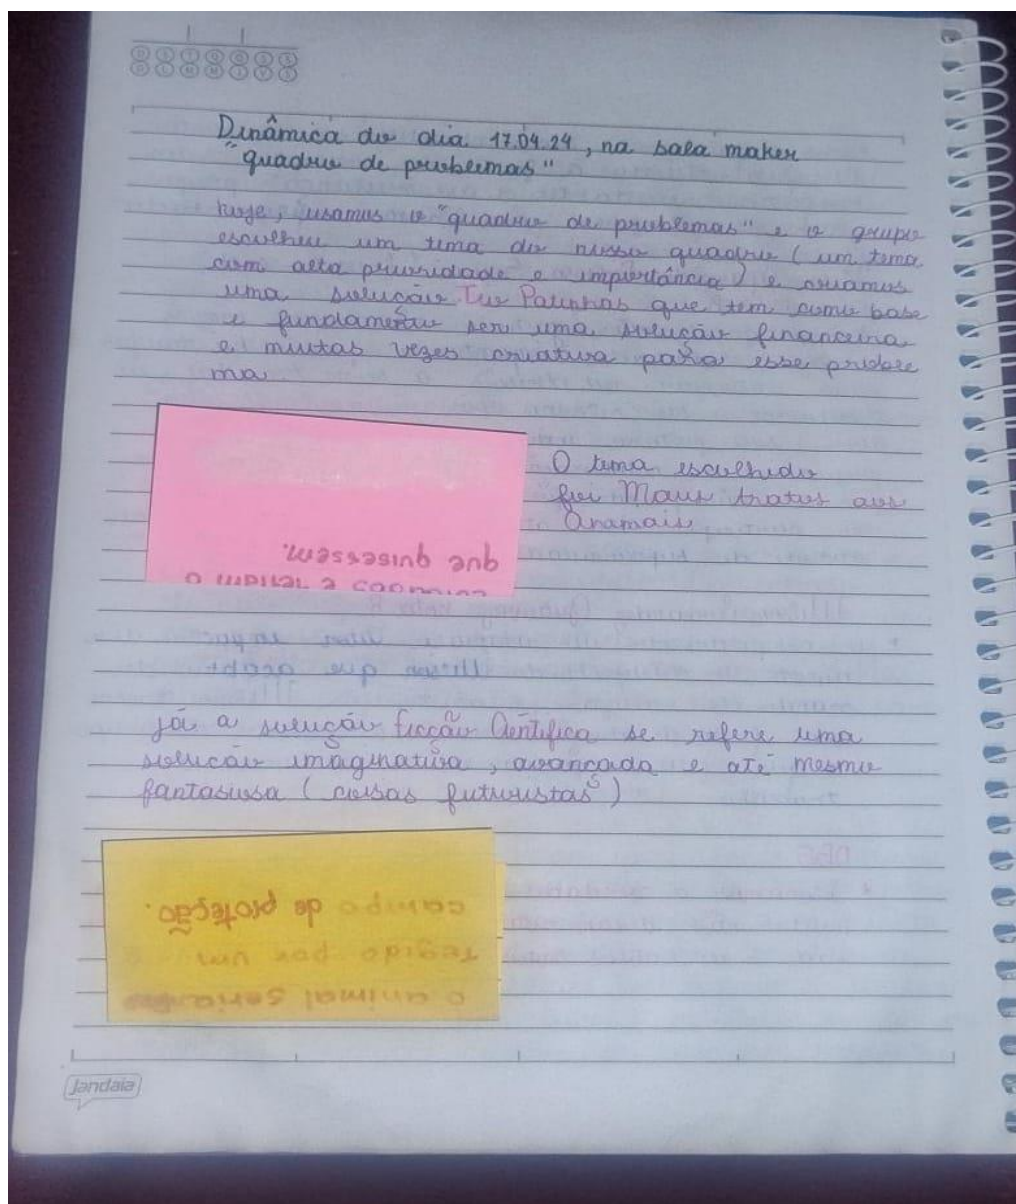 D S T Q Q S S
D L M M J V S
Dinâmica do dia 17.04.24, na sala maker
"quadro de problemas"
hoje, usamos o "quadro de problemas" e o grupo
escolheu um tema do nosso quadro (um tema
com alta prioridade e importância) e criamos
uma solução Tio Patinhas que tem como base
e fundamento ser uma solução financeira
e muitas vezes criativa para esse proble
ma
O tema escolhido
foi Maus tratos aos
Anamais
que quisessem.
já a solução ficção Científica se refere uma
solução imaginativa, avançada e até mesmo
fantasiosa (coisas futuristas)
o animal seria
tegido por um
campo de proteção.
Jandaia